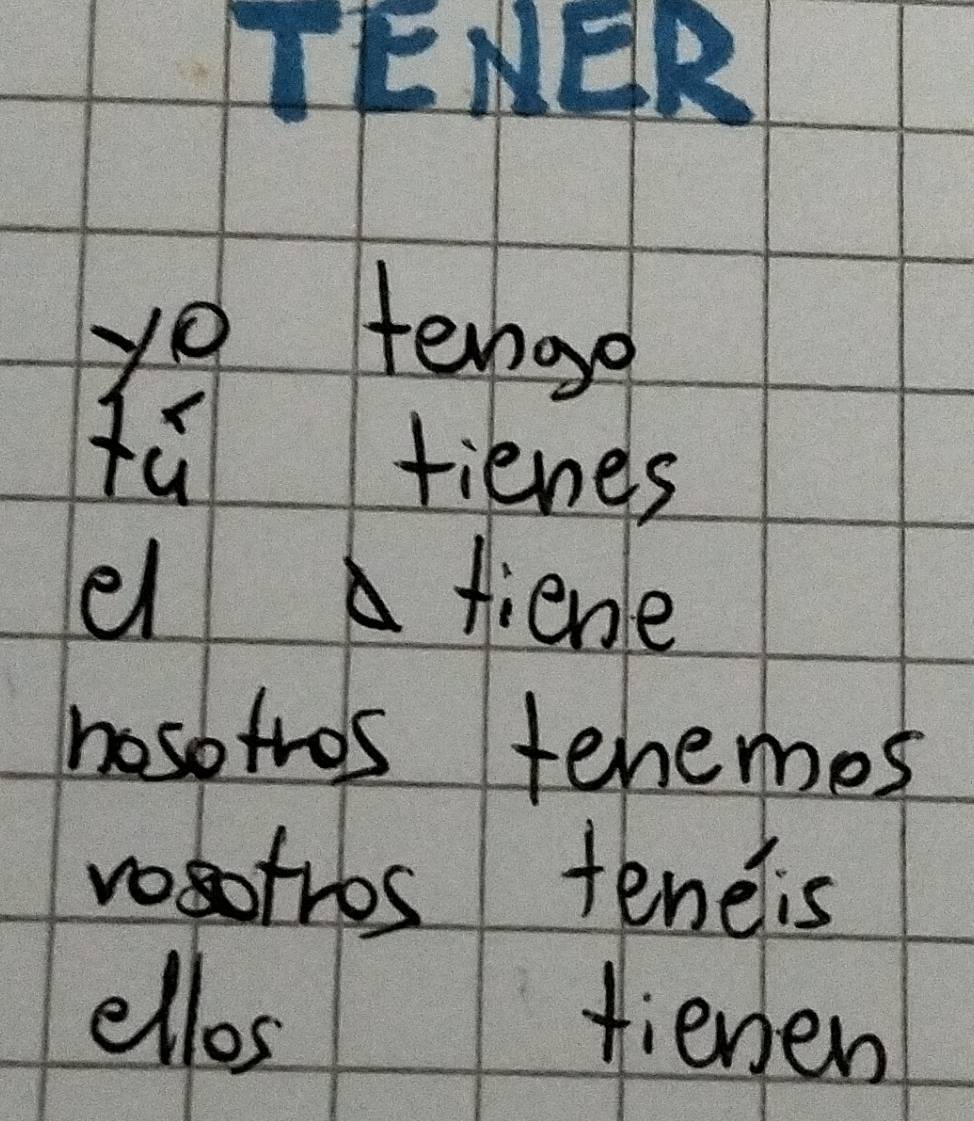 TENER
yo tengo
tú tienes
el tiene
nosotros tenemos
vosotros tenéis
ellos tienen